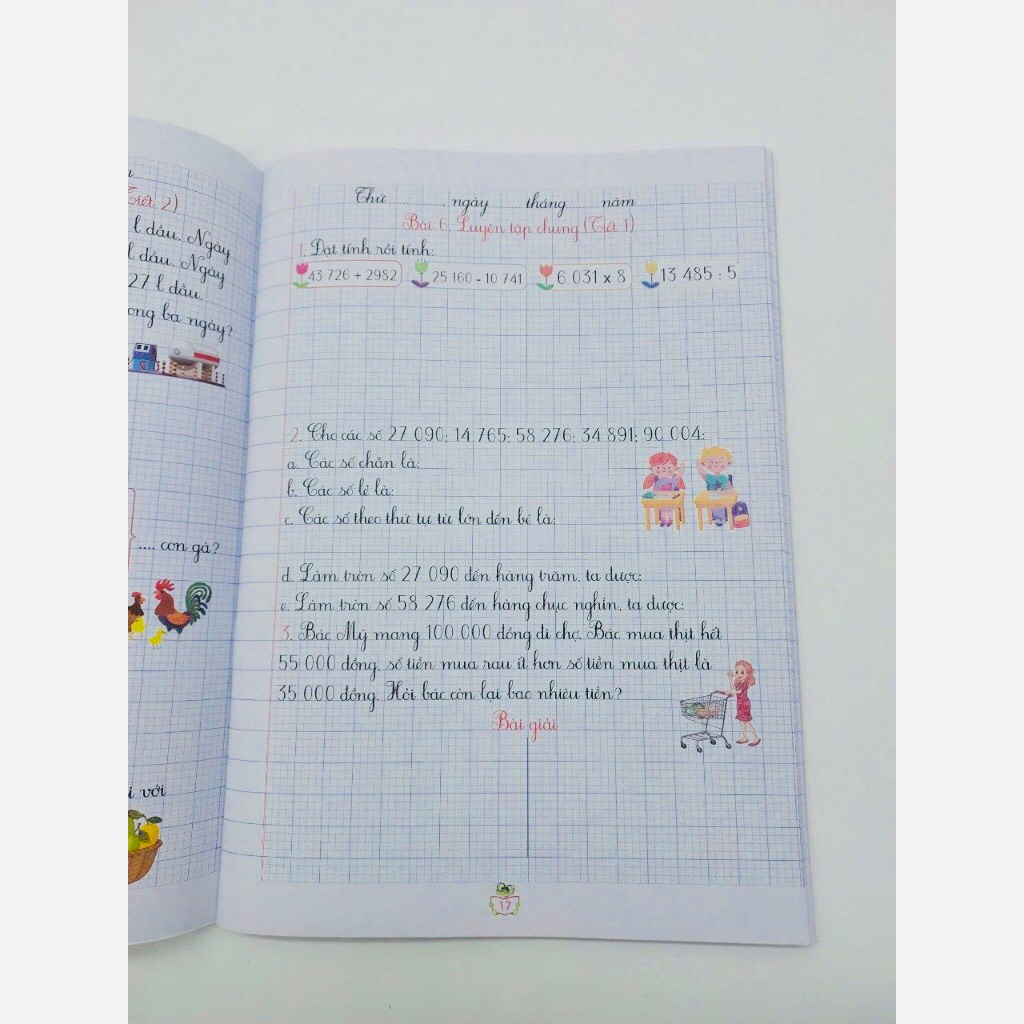 Tiết 2)
l dầu. Ngày
l dầu. Ngày
27 l dầu.
ong ba ngày?
.... con gà?
i với
Thứ ........ ngày ...... tháng ...... năm
Bài 6. Luyện tập chung (Tiết 1)
1. Đặt tính rồi tính:
43 726 + 2982 25 160 - 10 741 6 031 x 8 13 485 : 5
2. Cho các số 27 090; 14 765; 58 276; 34 891; 90 004:
a. Các số chẵn là:
b. Các số lẻ là:
c. Các số theo thứ tự từ lớn đến bé là:
d. Làm tròn số 27 090 đến hàng trăm, ta được:
e. Làm tròn số 58 276 đến hàng chục nghìn, ta được:
3. Bác Mỹ mang 100 000 đồng đi chợ. Bác mua thịt hết
55 000 đồng, số tiền mua rau ít hơn số tiền mua thịt là
35 000 đồng. Hỏi bác còn lại bao nhiêu tiền?
Bài giải
17